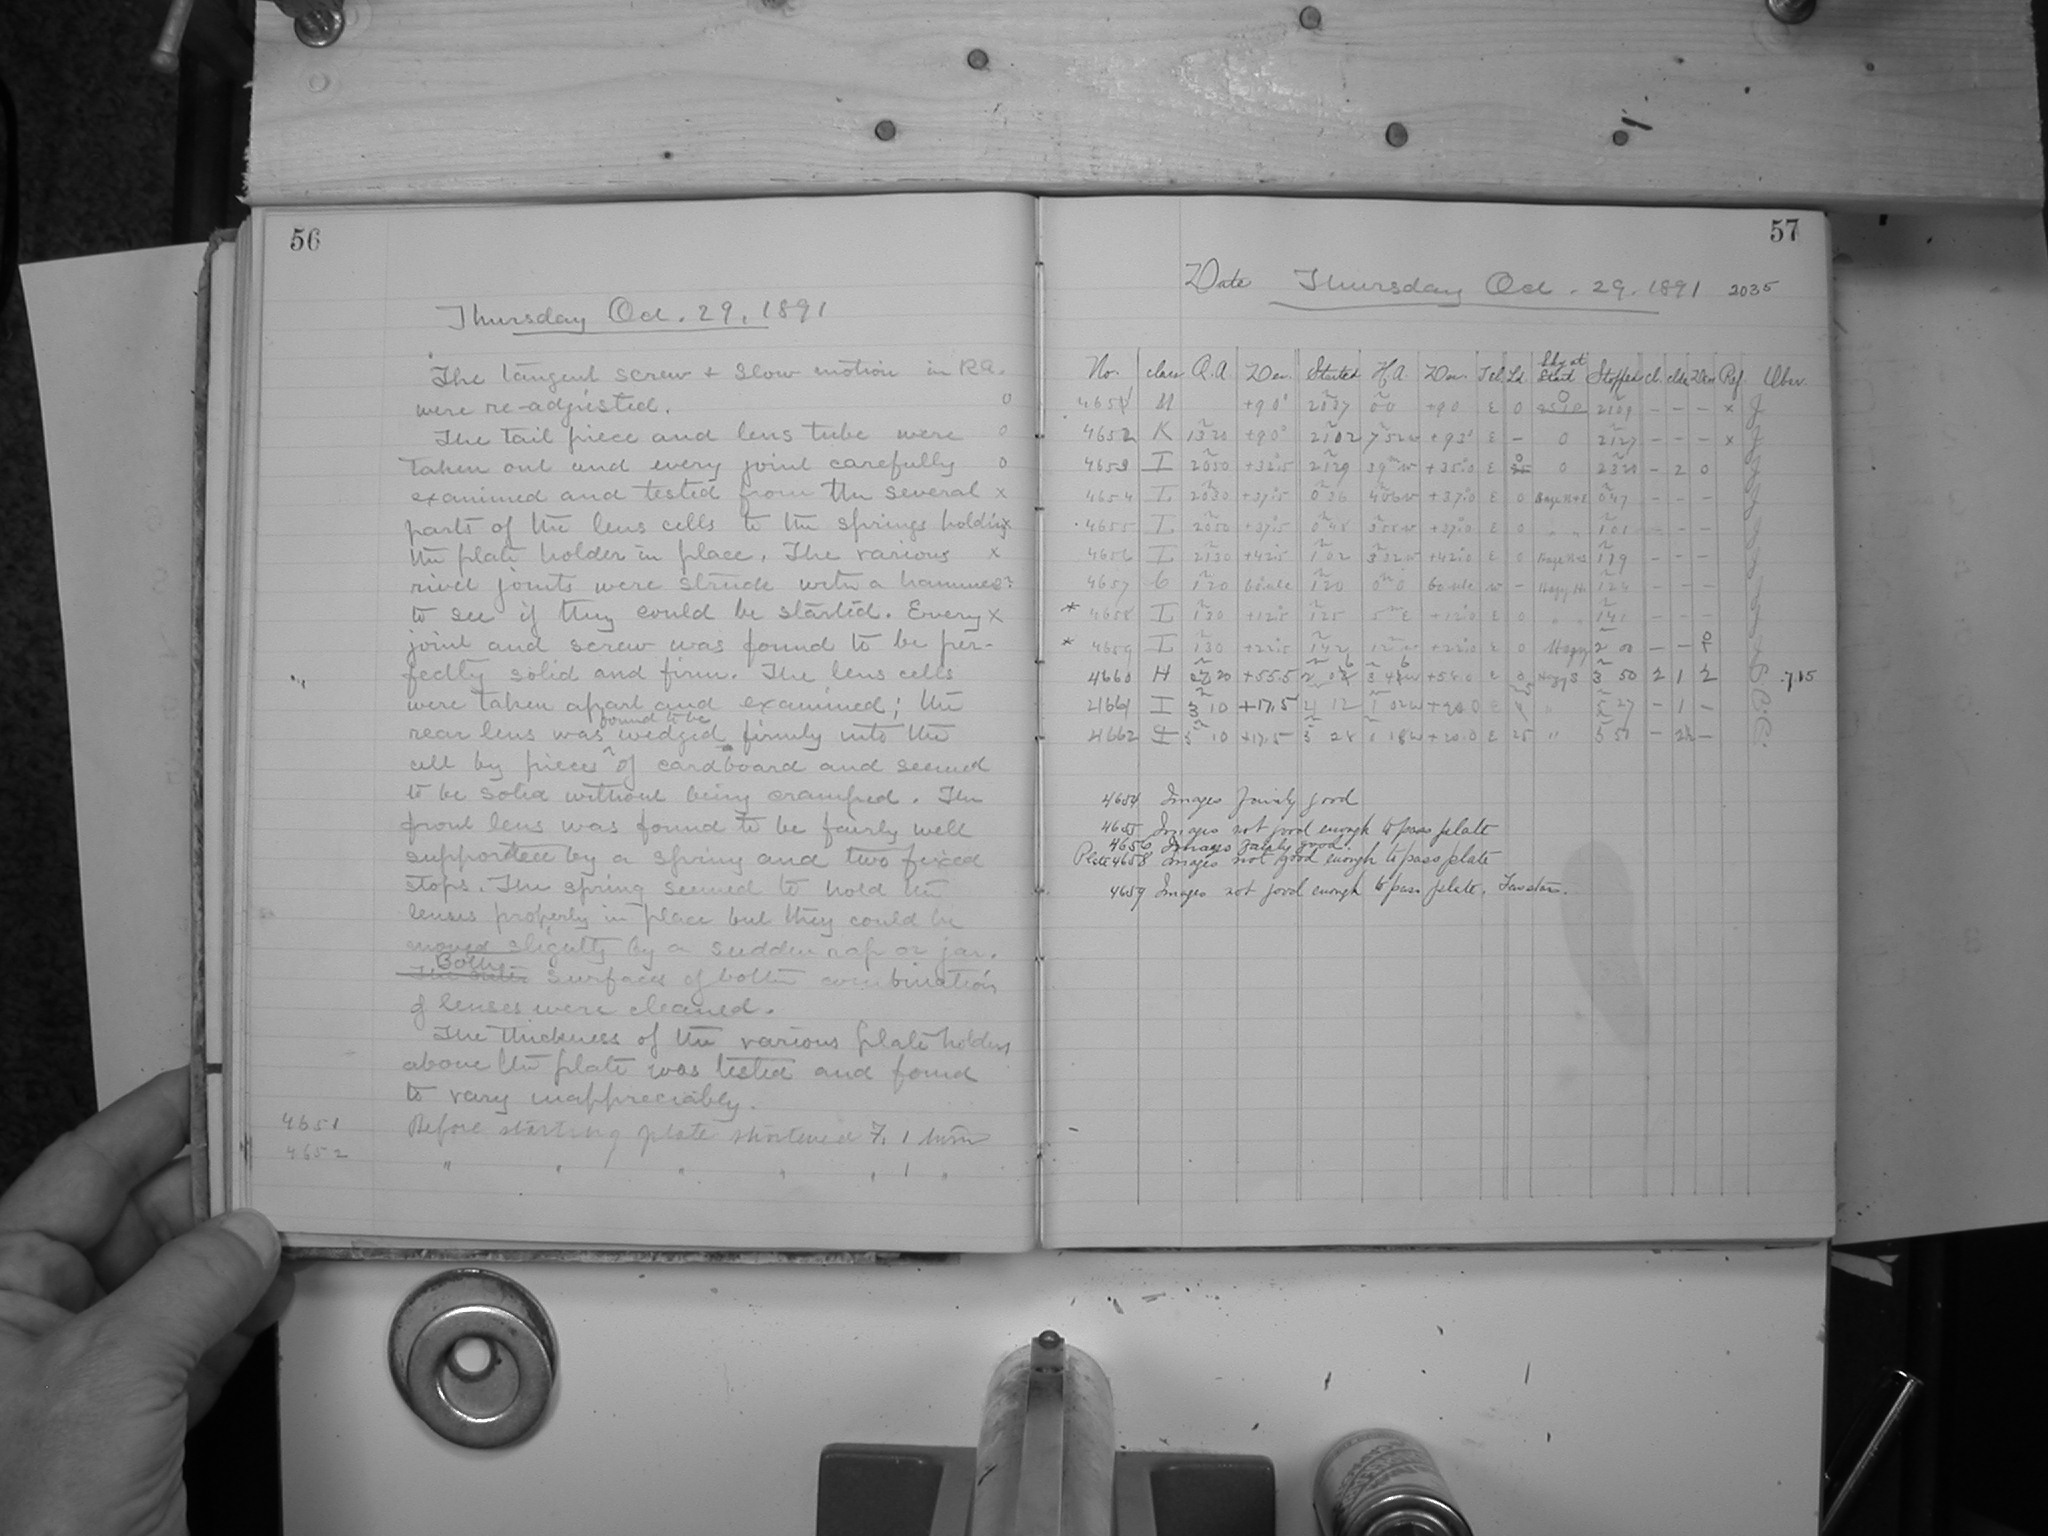 56
Thursday Oct. 29, 1891
The tangent screw + slow motion in RA.
were re-adjusted. 0
The tail piece and lens tube were 0
taken out and every joint carefully 0
examined and tested from the several x
parts of the lens cells to the springs holding x
the plate holder in place. The various x
rivet joints were struck with a hammer
to see if they could be started. Every x
joint and screw was found to be per-
fectly solid and firm. The lens cells
were taken apart and examined; the
found to be
rear lens was wedged firmly into the
cell by pieces of cardboard and seemed
to be solid without being cramped. The
front lens was found to be fairly well
supported by a spring and two fixed
stops. The spring seemed to hold the
lenses properly in place but they could be
moved slightly by a sudden rap or jar.
Both
surfaces of both combinations
of lenses were cleaned.
The thickness of the various plate holders
above the plate was tested and found
to vary inappreciably.
4651 Before starting plate shortened F. 1 turn
4652 " " " " " 1 "
57
Date Thursday Oct. 29. 1891 2035
No. class R.A. Dec. Started H.A. Dec. Tel. Ld. Sky at Start Stopped cl. clk. Dec. Ref Obsr.
4651 +90° 0 - - - x
4652 K +90° 21 02 E - 0 21 27 - - - x
4653 I 20 50 +32.5 21 29 +35.0 E 0 - 2 0
4654 I 20 30 +37.5 0 36 +37.0 E 0 0 47 - - -
4655 I 20 50 +37.5 0 48 +37.0 E 0 " " 1 01 - - -
4656 I 21 30 +42.5 1 02 3 32 w +42.0 E 0 1 19 - - -
4657 1 20 1 20 w - - - -
* 4658 I 1 30 +12.5 1 25 5 E +12.0 E 0 " " 1 41 - - -
* 4659 I 1 30 +22.5 1 42 12 w +22.0 E 0 Hazy 2 00 - -
4660 H +55.5 E 0 Hazy S 3 50 2 1 2 7.15
4661 I 3 10 +17.5 4 12 1 02 w +20.0 E " 5 27 - 1 -
4662 I 3 10 +17.5 5 28 +20.0 E 25 " 5 51 -
4654 Images fairly good
4655 Images not good enough to pass plate
4656 Images fairly good.
Plate 4658 Images not good enough to pass plate
4659 Images not good enough to pass plate. Few stars.